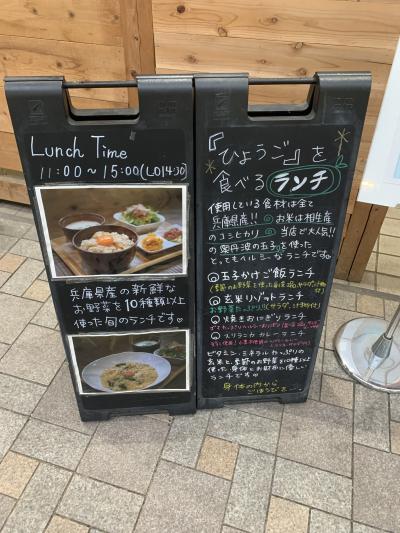 Lunch Time
11:00～15:00(LO14:30)
兵庫県産の新鮮な
お野菜を10種類以上
使った旬のランチです♡
『ひょうご』を
食べるランチ
使用している食材は全て
兵庫県産!! お米は相生産
のコシヒカリ 当店で大人気!!
の奥丹波の玉子を使った
とってもヘルシーなランチです♡
玉子かけご飯ランチ
玄米リゾットランチ
焼きおにぎりランチ
スリランカ カレーランチ
ビタミン、ミネラルたっぷりの
玄米と、季節のお野菜を10種以上
使った身体とお財布に優しい
ランチです
身体の内から
ごほうびを